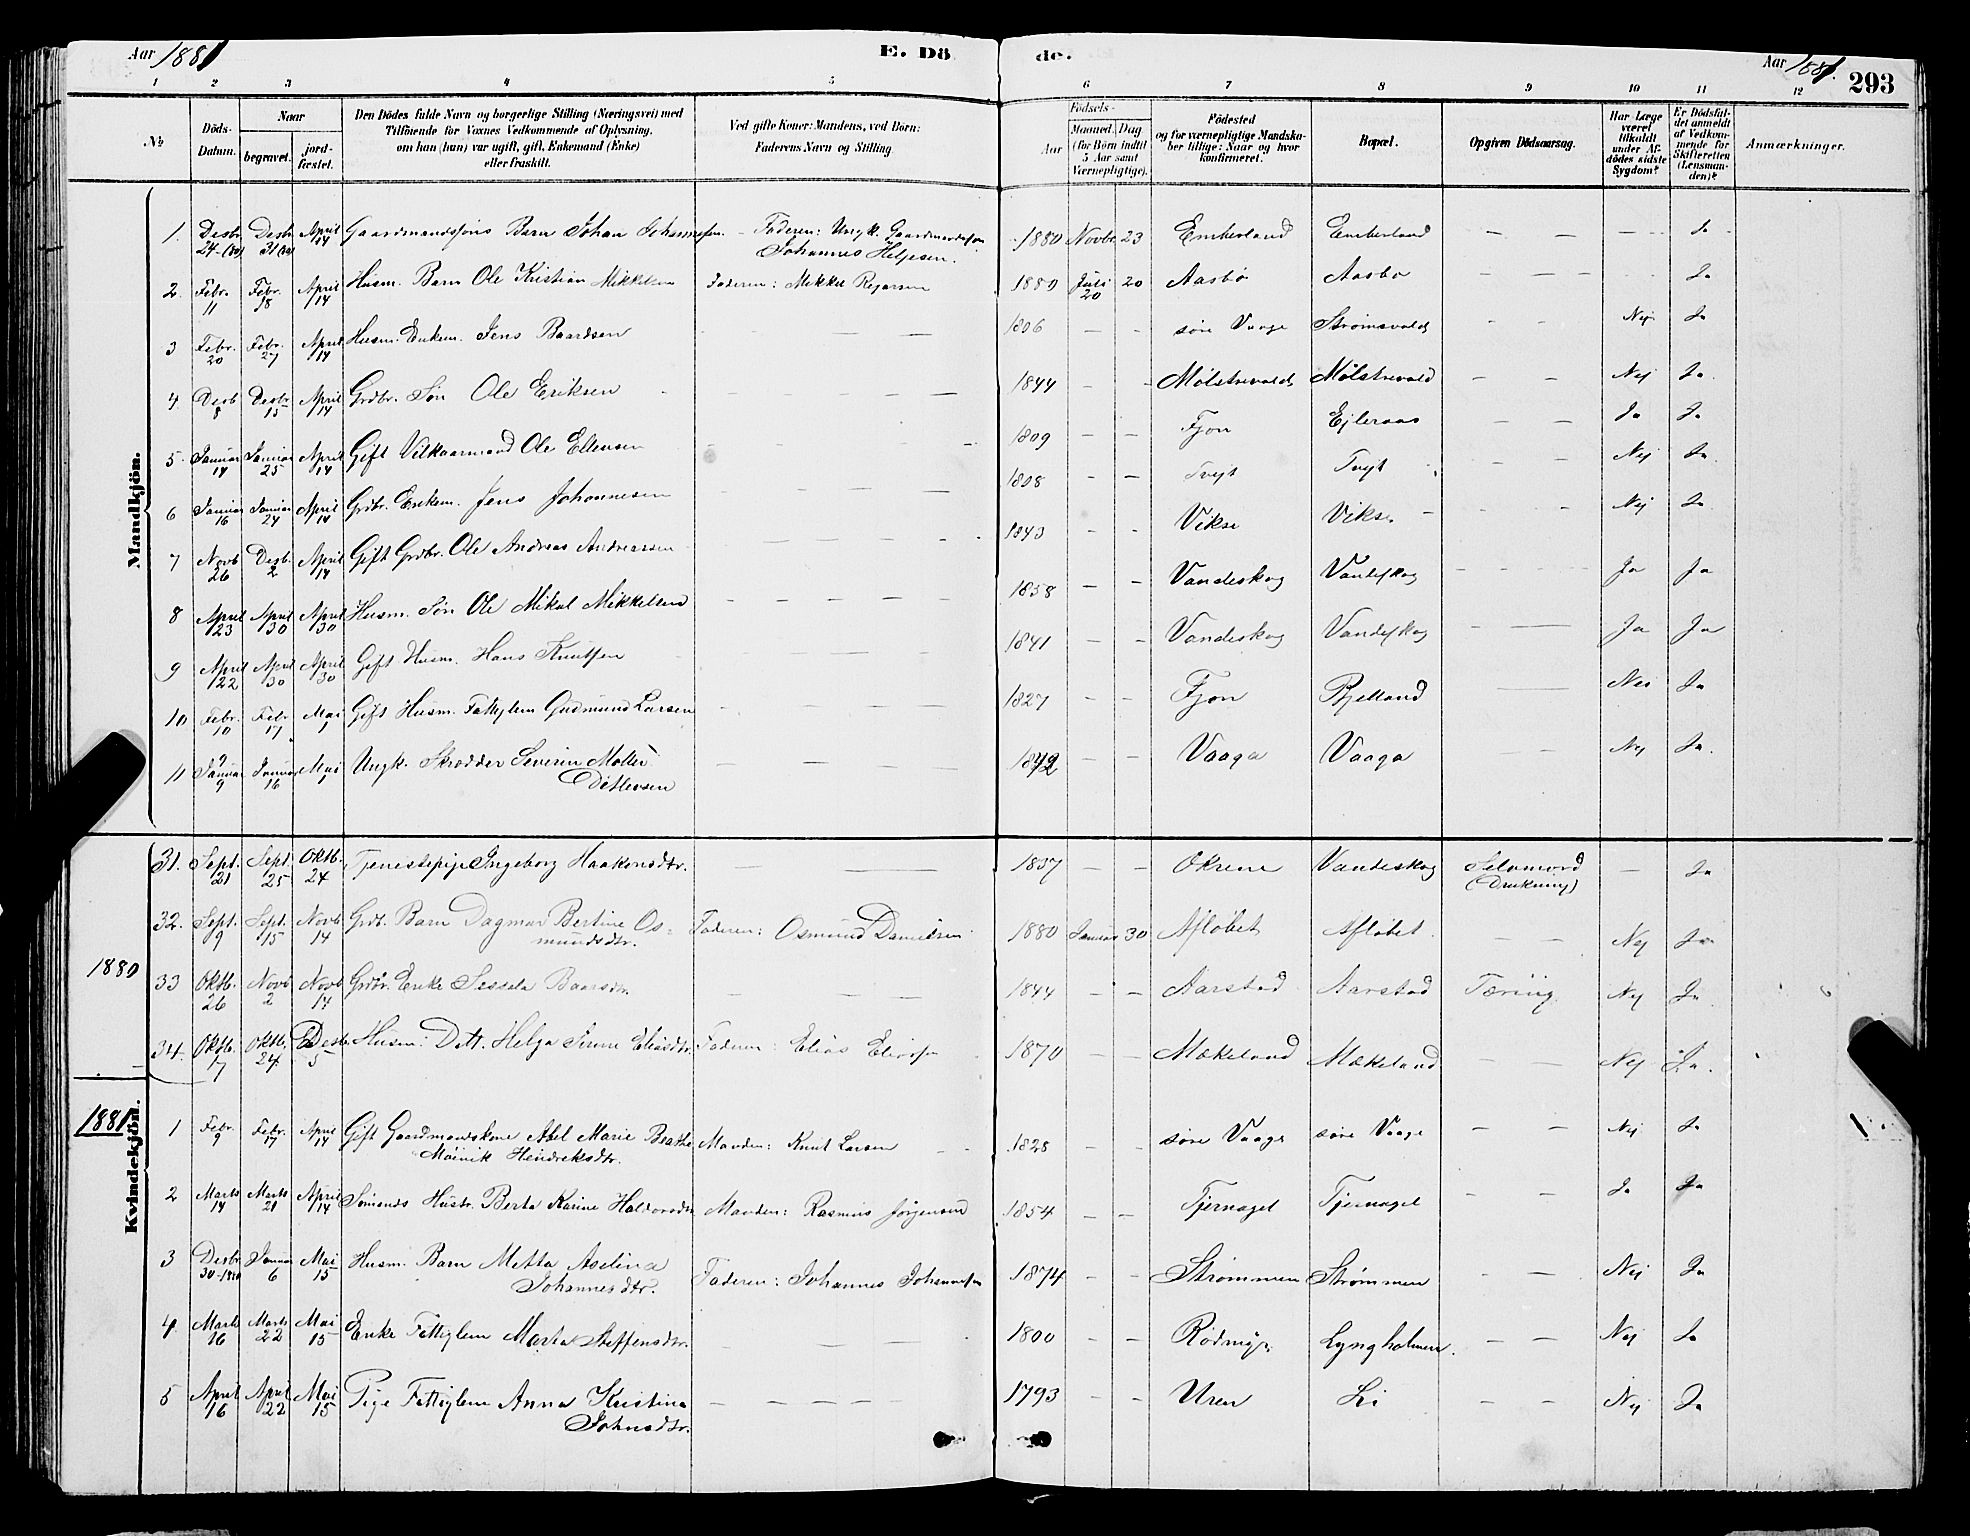 Aar 1881
E. Dö
de.
Aar 1881.
293
1 2 3 4 5 6 7 8 9 10 11 12
№
Döds-Datum.
Naar
begravet.
jord-fæstet.
Den Dödes fulde Navn og borgerlige Stilling (Næringsvei) med
Tilföiende for Voxnes Vedkommende af Oplysning,
om han (hun) var ugift, gift, Enkemand (Enke)
eller fraskilt.
Ved gifte Koner: Mandens, ved Börn:
Faderens Navn og Stilling.
Födsels-
Aar
Maaned. Dag
(for Börn indtil
5 Aar samt
Værnepligtige).
Födested
og for værnepligtige Mandska-
ber tillige: Naar og hvor
konfirmeret.
Bopæl.
Opgiven Dödsaarsag.
Har Læge
været
tilkaldt
under Af-
dödes sidste
Sygdom?
Er Dödsfal-
det anmeldt
af Vedkom-
mende for
Skifteretten
(Lensman-
den)?
Anmærkninger.
Mandkjön.
1. Desbr. 24-(80) Desbr 31(80) April 14 Gaardmandssöns Barn Johan Johannessen. Faderen: Ungk. Gaardmandssön Johannes Helgesen. 1880 Novbr. 23 Emberland Emberland Ja
2. Febr. 11 Febr. 18 April 14 Husm. Barn Ole Kristian Mikkelsen Faderen: Mikkel 1880 Juli 20 20 Aasbö Aasbö Ja
3 Febr. 20 Febr. 27 April 14 Husm. Enkem. Jens Baardsen 1806 söre Vaage Strömsvold Nej Ja
4. Desb 8 Desbr. 15 April 14 Grdbr. Sön Ole Eriksen 1844 Mölstrevold Mölstrevold Nej Ja.
5 Januar 14 Januar 25 April 14 Gift Vilkaarmand Ole Ellensen 1809 Fjon Ejleraas Ja Ja
6 Januar 16 Januar 24 April 14 Grdbr. Enkem. Jens Johannesen 1808 Tvejt Tvejt Nej Ja.
7 Novb 26 Desb. 2 April 14 Gift Grdbr. Ole Andreas Andreassen 1843 Vikse Vikse Nej Ja.
8 April 23 April 30 April 30 Husm. Sön Ole Mikal Mikkelsen 1858 Vandeskog Vandeskog Ja Ja
9 April 22 April 30 April 30 Gift Husm. Hans Knutsen 1841 Vandeskog Vandeskog Ja Ja
10 Febr. 10 Febr. 17 Mai 1 Gift Husm. Fattiglem Gudmund Larsen 1827 Fjon Bjelland Nei Ja
11 Januar 9 Januar 16 Mai 1 Ungk. Skrædder Severin Möller Ditlevsen Vaaga Vaaga Nej Ja.
31. Sept. 21 Sept. 25 Oktb. 24 Tjenestepige Ingeborg Haakonsdtr. 1837 Økrene Vandeskog Selvmord (Drukning) Ja
32. Sept. 9 Sept. 15 Novb. 14 Grdb. Barn Dagmar Bertine Osmundsdtr. Faderen: Osmund Danielsen 1880 Januar 30 Aflöbet Aflöbet Nej Ja
1880
33 Oktb. 26 Novb 2 Novb 14 Grdbr. Enke Sessela Baarsdtr. 1844 Aarstad Aarstad Tæring. Nej Ja.
34. Oktb. 17 Oktb. 24. Desb. 5 Husm. Datt. Helga Sirine Eliasdtr. Faderen: Elias Eliassen 1870 Mækeland Mækeland Nej Ja.
1881.
Kvindekjön.
1 Febr. 9 Febr. 17 April 14 Gift Gaardmandskone Abel Marie Beathe Hendreksdtr. Manden: Knut Larsen 1825 söre Vaage söre Vaage Nej Ja
2 Marts 14 Marts 21 April 14 Sömands Hustr. Berta Karine Haldorsdtr Manden: Rasmus Jörgensen 1854 Tjernagel Tjernagel Ja Ja
3 Desbr 30-1880 Januar 6 Mai 15 Husm. Barn Metta Aselina Johannesdtr. Faderen: Johannes Johannessen 1874 Strömmen Strømmen Nej Ja
4. Marts 16 Marts 22 Mai 15 Enke Fattiglem Marta Steffensdtr. 1800 Rödmyr Lyngholmen. Nej Ja
5 April 16 April 22 Mai 15 Pige Fattiglem Anna Kristina Johnsdtr. 1793 Uren Li Nej Ja